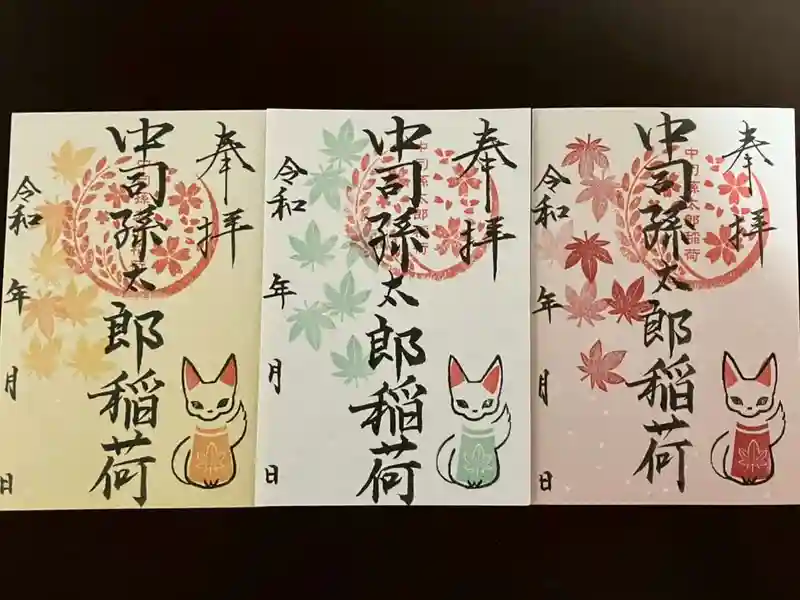 奉拝
中司孫太郎稲荷
令和 年 月 日
奉拝
中司孫太郎稲荷
中司孫太郎稲荷
令和 年 月 日
奉拝
中司孫太郎稲荷
中司孫太郎稲荷
令和 年 月 日